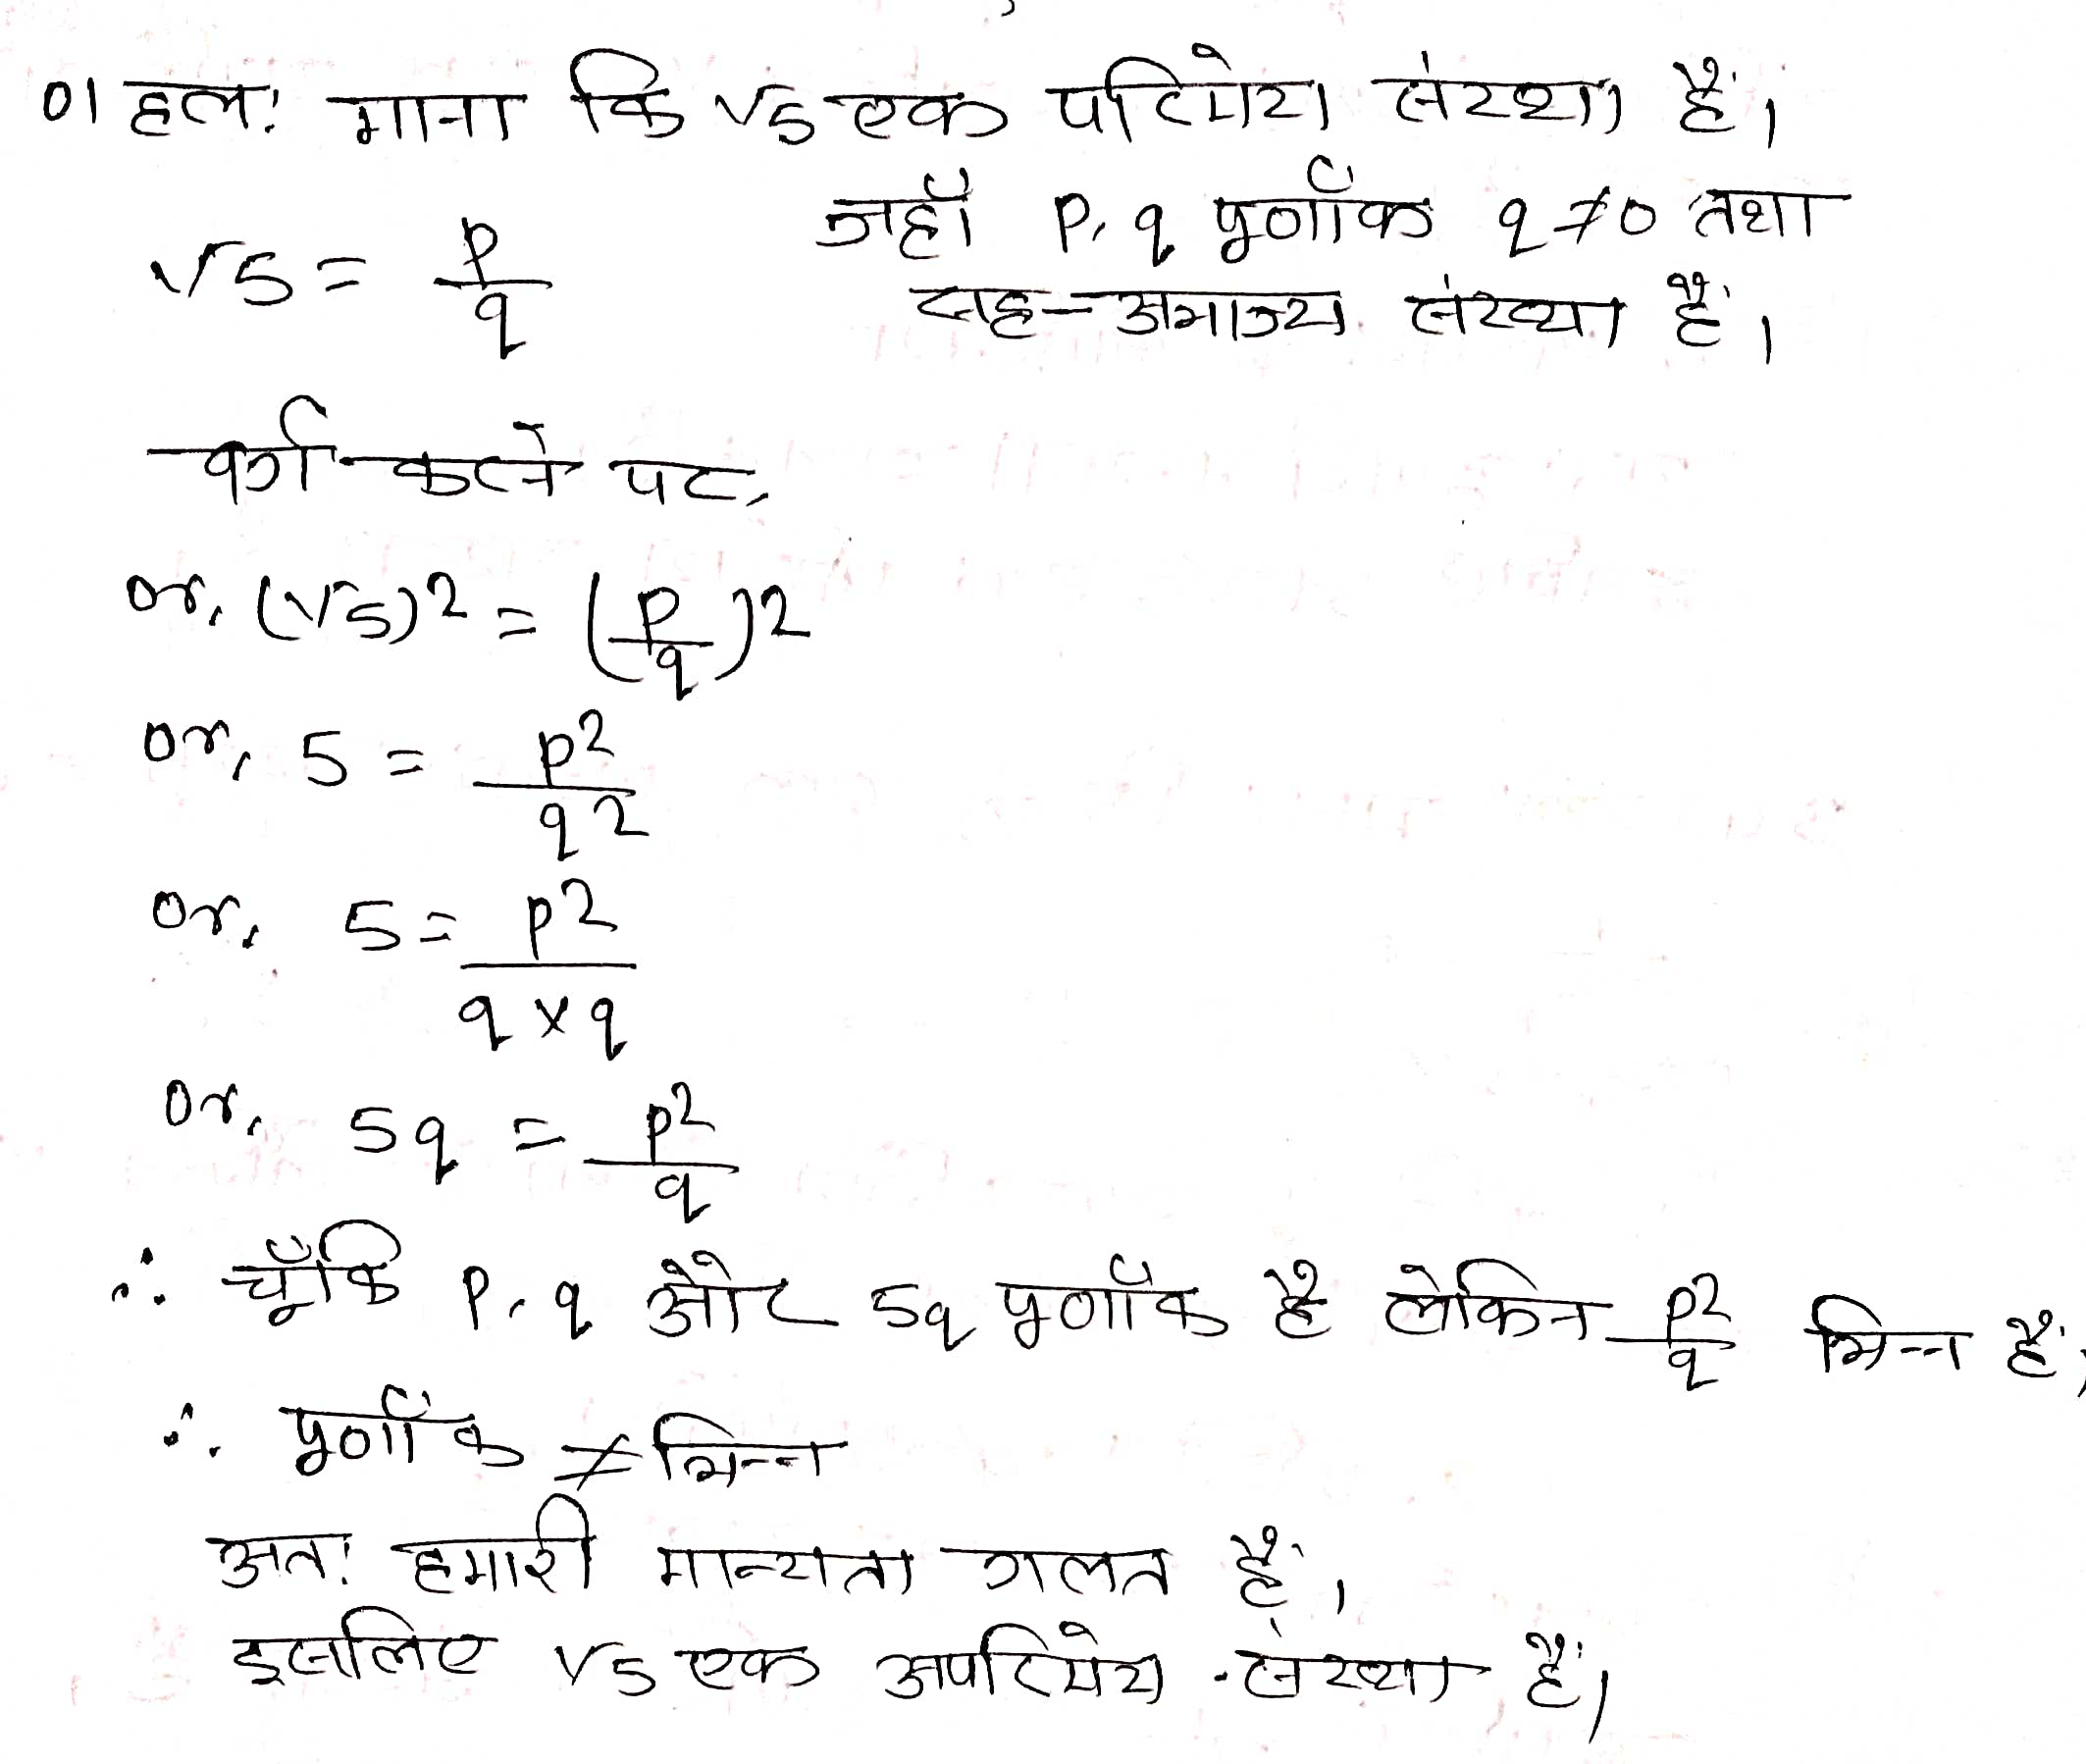 01 हल: माना कि √5 एक परिमेय संख्या है।
√5 = p/q जहाँ p, q पूर्णांक q ≠ 0 तथा
सह-अभाज्य संख्या है।
वर्ग करने पर,
or, (√5)² = (p/q)²
or, 5 = p²/q²
or, 5 = p²/q×q
or, 5q = p²/q
∴ चूँकि p, q और 5q पूर्णांक है लेकिन p²/q भिन्न है,
∴ पूर्णांक ≠ भिन्न
अत: हमारी मान्यता गलत है।
इसलिए √5 एक अपरिमेय संख्या है।